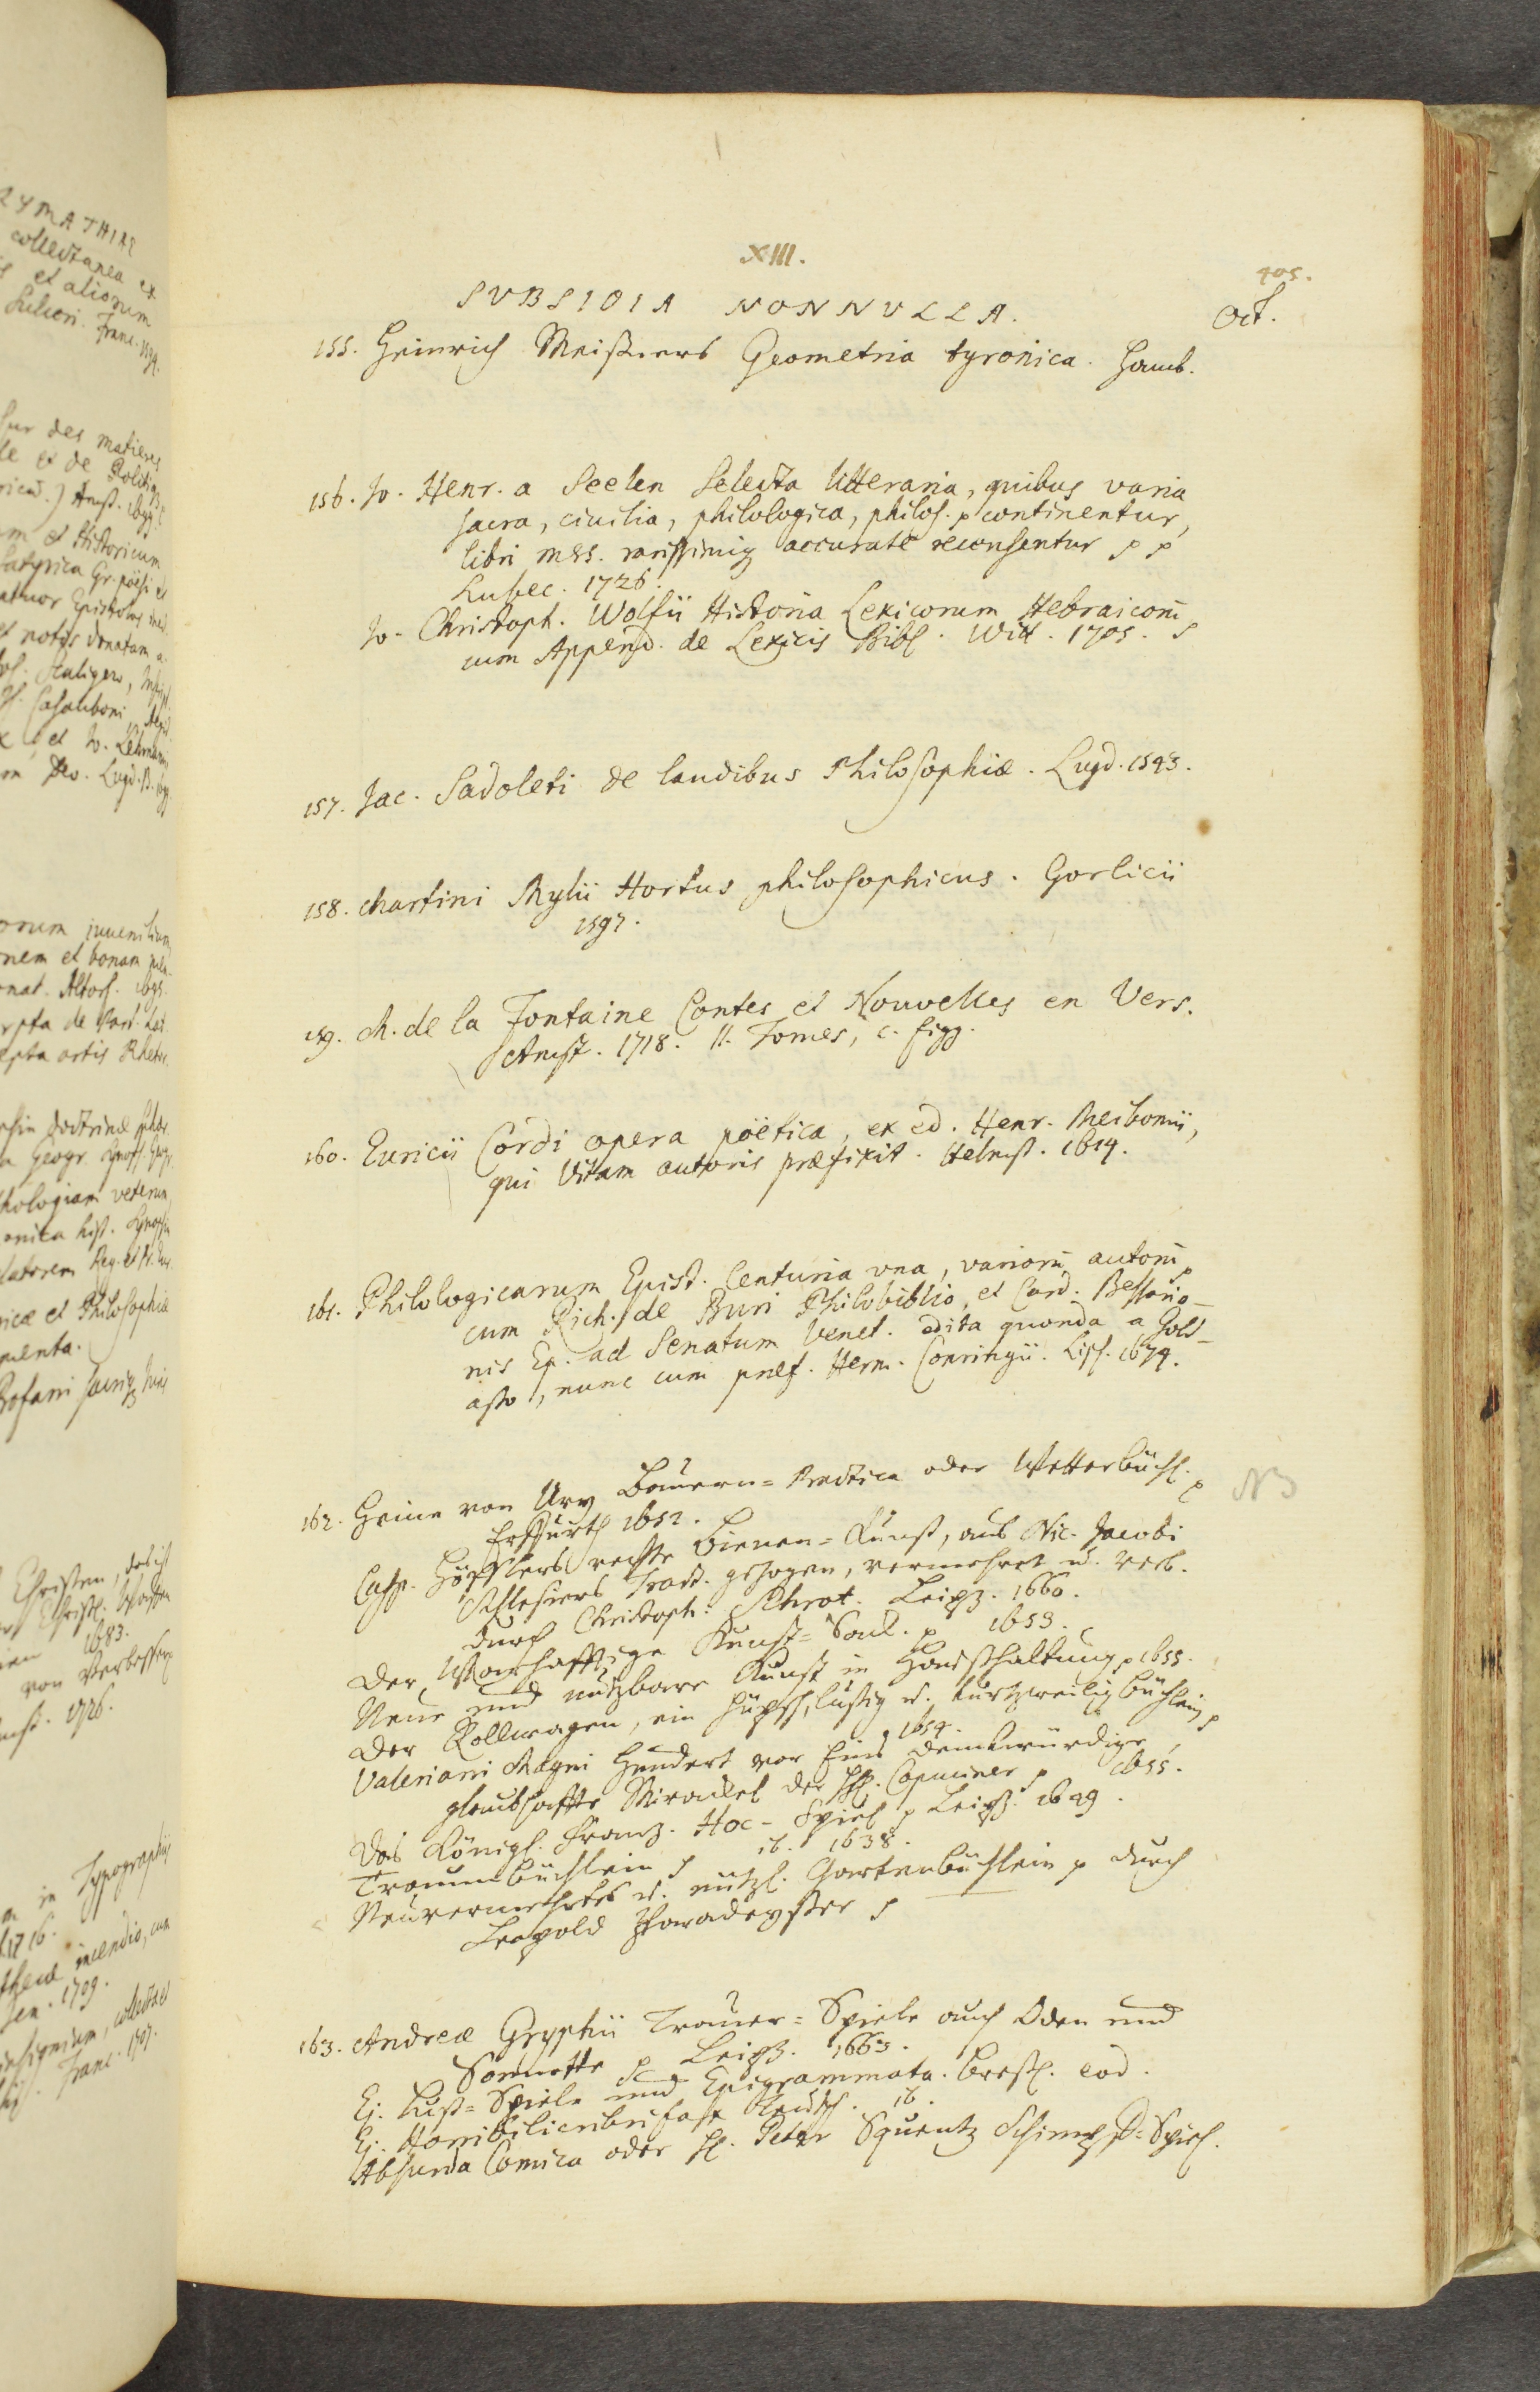 XIII.
405.
SVBSIDIA NONNVLLA.
Oct.
155. Heinrich Meißners Geometria tyronica. Hamb.
156. Jo. Henr. a Seelen Selecta litteraria, quibus varia
sacra, ciuilia, philologica, philos. p continentur,
libri mss. rarissimiq accurate recensentur p p
Lubec. 1726.
Jo. Christoph. Wolfii Historia Lexicorum Hebraicorū
cum Append. de Lexicis Bibl. Witt. 1705. p
157. Jac. Sadoleti de laudibus Philosophiæ. Lugd. 1543.
158. Martini Mylii Hortus philosophicus. Gorlicii
1597.
159. M. de la Fontaine Contes et Nouvelles en Vers.
Amst. 1718. II. Tomes, c. figg.
160. Euricii Cordi opera poëtica, ex ed. Henr. Meibomii,
qui Vitam autoris præfixit. Helmst. 1614.
161. Philologicarum Epist. Centuria vna, variorū autorū
cum Rich. de Buri Philobiblio, et Card. Bessario-
nis Ep. ad Senatum Venet. edita quonda a Gold-
asto, nunc cum præf. Herm. Conringii. Lips. 1674.
162. Heine von Ury Bauern=Practica oder Wetterbüchl. p
NB
Erffurth 1652.
Casp. Höfflers rechte Bienen=Kunst, aus Nic. Jacobi
Schlesiers Tract. gezogen, vermehret u. verb.
durch Christoph: Schrot. Leipz. 1660.
Der Warhafftige Kunst=Saal. p 1653.
Neue und nutzbare Kunst in Haußhaltung p 1655.
Der Rollwagen, ein hüpsch, lustig u. kurtzweilig büchlein p
1654.
Valeriani Magni Hundert vor Eins denkwürdige,
glaubhaffte Mirackel der HH. Capuciner p 1655.
Das Königl. Frantz. Hoc-Spiel p Leipz. 1649.
Traumbüchlein p ib. 1638.
Neuvermehrtes u. nützl. Gartenbüchlein p durch
Leopold Paradeyßer p
163. Andreæ Gryphii Trauer=Spiele auch Oden und
Sonnette p Leipz. 1663.
Ej. Lust=Spiele und Epigrammata. Bresl. eod.
Ej. Horribilicribrifax Teutsch. ib.
Absurda Comica oder H. Peter Squentz Schimpff=Spiel.